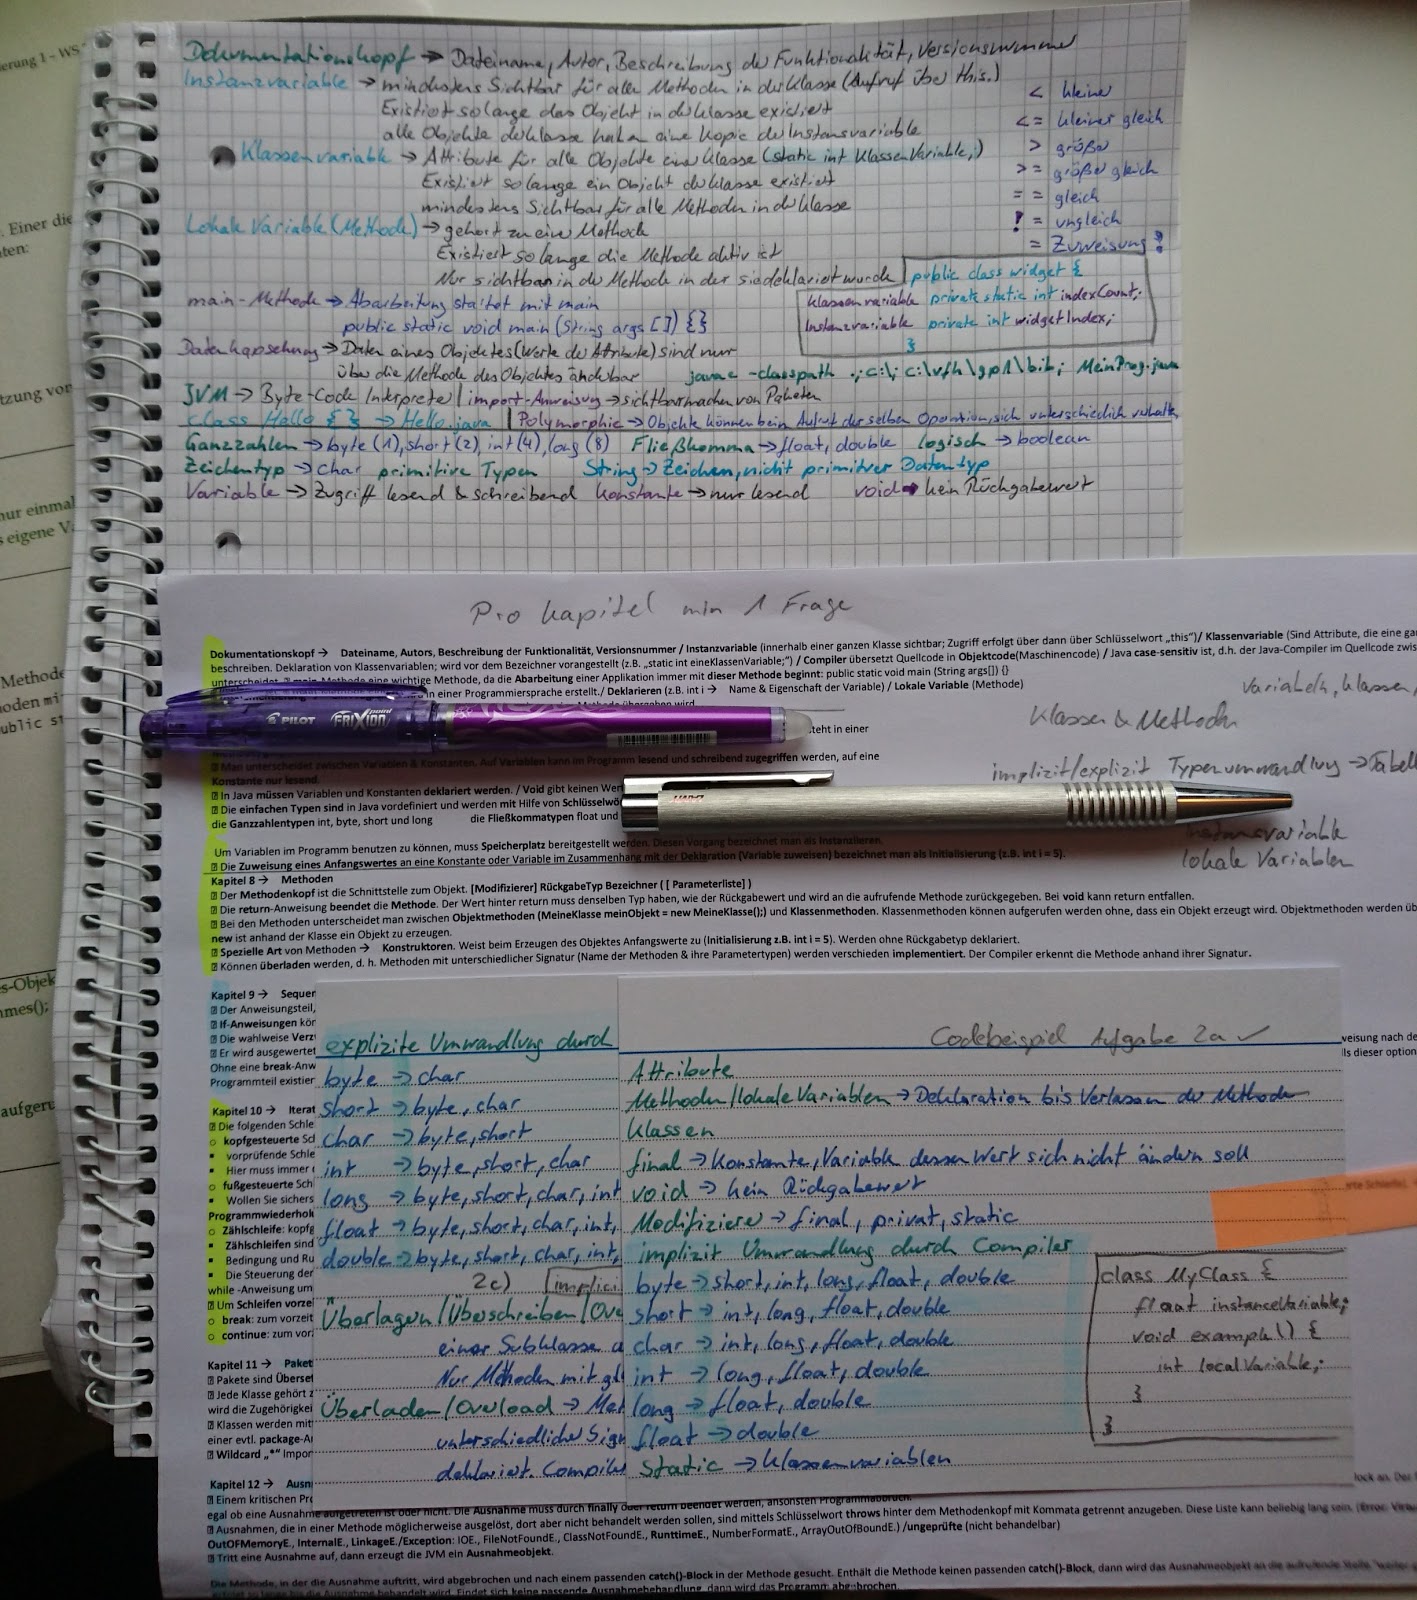 erung 1 - WS
. Einer die
ten:
tzung von
nur einmal
s eigene V
Methode
oden mi
public st
s-Objek
nmes();
aufgeru
Dokumentationskopf → Dateiname, Autor, Beschreibung der Funktionalität, Versionsnummer
Instanzvariable → mindestens Sichtbar für allen Methoden in der Klasse (Aufruf über this.)
Existiert so lange das Objekt in der Klasse existiert
alle Objekte der Klasse haben eine Kopie der Instanzvariable
Klassenvariable → Attribute für alle Objekte einer Klasse (static int KlassenVariable;)
Existiert so lange ein Objekt der Klasse existiert
mindestens Sichtbar für alle Methoden in der Klasse
Lokale Variable (Methode) → gehört zu einer Methode
Existiert so lange die Methode aktiv ist
Nur sichtbar in der Methode in der sie deklariert wurde
main-Methode → Abarbeitung startet mit main
public static void main (String args []) {}
Datenkapselung → Daten eines Objektes (Werte der Attribute) sind nur
über die Methode des Objektes änderbar
< kleiner
<= kleiner gleich
> größer
>= größer gleich
== gleich
!= ungleich
= Zuweisung !
public class widget {
Klassenvariable private static int indexCount;
Instanzvariable private int widgetIndex;
}
javac -classpath .;c:\; c:\vfh\gp1\bib; MeinProg.java
JVM → Byte-Code Interpreter | import-Anweisung → sichtbarmachen von Paketen
class Hello {} → Hello.java | Polymorphie → Objekte können beim Aufruf der selben Operation, sich unterschiedlich verhalten
Ganzzahlen → byte (1), short (2), int (4), long (8) Fließkomma → float, double logisch → boolean
Zeichentyp → char primitive Typen String → Zeichen, nicht primitiver Datentyp
Variable → Zugriff lesend & schreibend Konstante → nur lesend void → kein Rückgabewert
Pro Kapitel min 1 Frage
Dokumentationskopf → Dateiname, Autors, Beschreibung der Funktionalität, Versionsnummer / Instanzvariable (innerhalb einer ganzen Klasse sichtbar; Zugriff erfolgt über dann über Schlüsselwort „this“)/ Klassenvariable (Sind Attribute, die eine ga
beschreiben. Deklaration von Klassenvariablen; wird vor dem Bezeichner vorangestellt (z.B. „static int eineKlassenVariable;“) / Compiler übersetzt Quellcode in Objektcode(Maschinencode) / Java case-sensitiv ist, d.h. der Java-Compiler im Quellcode zwis
unterscheidet main-Methode eine wichtige Methode, da die Abarbeitung einer Applikation immer mit dieser Methode beginnt: public static void main (String args[]) {}
n einer Programmiersprache erstellt./ Deklarieren (z.B. int i → Name & Eigenschaft der Variable) / Lokale Variable (Methode)
Variabeln, Klassen,
Klassen & Methoden
PILOT FRIXION point
steht in einer
Man unterscheidet zwischen Variablen & Konstanten. Auf Variablen kann im Programm lesend und schreibend zugegriffen werden, auf eine
Konstante nur lesend.
implizit/explizit Typenumwandlung → Tabell
In Java müssen Variablen und Konstanten deklariert werden. / Void gibt keinen Wer
Die einfachen Typen sind in Java vordefiniert und werden mit Hilfe von Schlüsselwö
die Ganzzahlentypen int, byte, short und long die Fließkommatypen float und
LAMY
Instanzvariable
lokale Variablen
Um Variablen im Programm benutzen zu können, muss Speicherplatz bereitgestellt werden. Diesen Vorgang bezeichnet man als Instanziieren.
Die Zuweisung eines Anfangswertes an eine Konstante oder Variable im Zusammenhang mit der Deklaration (Variable zuweisen) bezeichnet man als Initialisierung (z.B. int i = 5).
Kapitel 8 → Methoden
Der Methodenkopf ist die Schnittstelle zum Objekt. [Modifizierer] RückgabeTyp Bezeichner ( [ Parameterliste] )
Die return-Anweisung beendet die Methode. Der Wert hinter return muss denselben Typ haben, wie der Rückgabewert und wird an die aufrufende Methode zurückgegeben. Bei void kann return entfallen.
Bei den Methoden unterscheidet man zwischen Objektmethoden (MeineKlasse meinObjekt = new MeineKlasse();) und Klassenmethoden. Klassenmethoden können aufgerufen werden ohne, dass ein Objekt erzeugt wird. Objektmethoden werden üb
new ist anhand der Klasse ein Objekt zu erzeugen.
Spezielle Art von Methoden → Konstruktoren. Weist beim Erzeugen des Objektes Anfangswerte zu (Initialisierung z.B. int i = 5). Werden ohne Rückgabetyp deklariert.
Können überladen werden, d. h. Methoden mit unterschiedlicher Signatur (Name der Methoden & ihre Parametertypen) werden verschieden implementiert. Der Compiler erkennt die Methode anhand ihrer Signatur.
Kapitel 9 → Sequen
Der Anweisungsteil,
If-Anweisungen kön
Die wahlweise Verz
Er wird ausgewertet
Ohne eine break-Anw
Programmteil existier
weisung nach de
ls dieser option
Kapitel 10 → Iterat
Die folgenden Schle
kopfgesteuerte Sch
vorprüfende Schle
Hier muss immer
fußgesteuerte Sch
Wollen Sie sichers
Programmwiederhol
Zählschleife: kopfg
Zählschleifen sind
Bedingung und Ru
Die Steuerung der
while -Anweisung um
Um Schleifen vorze
break: zum vorzeit
continue: zum vor
Kapitel 11 → Paket
Pakete sind Überset
Jede Klasse gehört z
wird die Zugehörigkei
Klassen werden mit
einer evtl. package-A
Wildcard „*“ Impor
explizite Umwandlung durch
byte → char
short → byte, char
char → byte, short
int → byte, short, char
long → byte, short, char, int
float → byte, short, char, int,
double → byte, short, char, int,
2c) implizi
Überlagern/Überschreiben/Ove
einer Subklasse a
Nur Methoden mit gl
Überladen/Overload → Met
unterschiedliche Sign
deklariert. Compiler
Codebeispiel Aufgabe 2a ✓
Attribute
Methoden/lokale Variablen → Deklaration bis Verlassen der Methode
Klassen
final → Konstante, Variable dessen Wert sich nicht ändern soll
void → kein Rückgabewert
Modifizierer → final, privat, static
implizit Umwandlung durch Compiler
byte → short, int, long, float, double
short → int, long, float, double
char → int, long, float, double
int → long, float, double
long → float, double
float → double
Static → Klassenvariablen
class MyClass {
float instanceVariable;
void example() {
int localVariable;
}
}
Kapitel 12 → Ausn
Einem kritischen Pr
lock an. Der
egal ob eine Ausnahme aufgetreten ist oder nicht. Die Ausnahme muss durch finally oder return beendet werden, ansonsten Programmabbruch.
Ausnahmen, die in einer Methode möglicherweise ausgelöst, dort aber nicht behandelt werden sollen, sind mittels Schlüsselwort throws hinter dem Methodenkopf mit Kommata getrennt anzugeben. Diese Liste kann beliebig lang sein. (Error: Virtu
OutOFMemoryE., InternalE., LinkageE./Exception: IOE., FileNotFoundE., ClassNotFoundE., RunttimeE., NumberFormatE., ArrayOutOfBoundE.) /ungeprüfte (nicht behandelbar)
Tritt eine Ausnahme auf, dann erzeugt die JVM ein Ausnahmeobjekt.
Die Methode, in der die Ausnahme auftritt, wird abgebrochen und nach einem passenden catch()-Block in der Methode gesucht. Enthält die Methode keinen passenden catch()-Block, dann wird das Ausnahmeobjekt an die aufrufende Stelle
erfolgt so lange bis die Ausnahme behandelt wird. Findet sich keine passende Ausnahmebehandlung, dann wird das Programm abgebrochen.